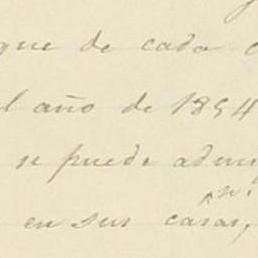 que de cada
el año de 1854
se puede
n.
en sus casas,